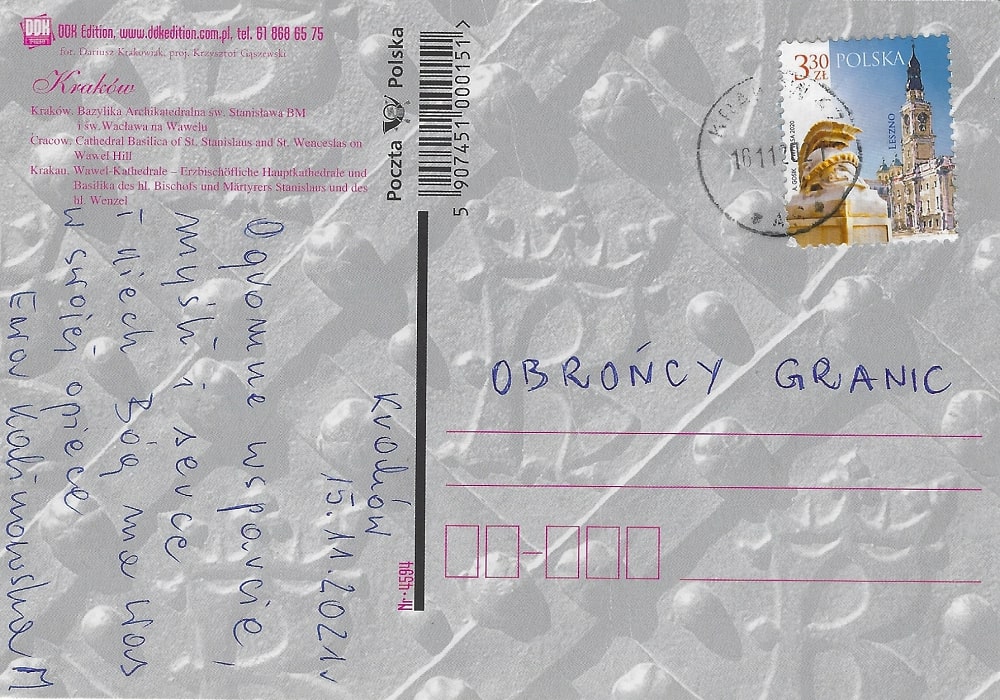 DDK Edition, www.ddkedition.com.pl, tel. 61 868 65 75
fot. Dariusz Krakowiak, proj. Krzysztof Gąszewski
Kraków
Kraków. Bazylika Archikatedralna św. Stanisława BM
i św. Wacława na Wawelu
Cracow. Cathedral Basilica of St. Stanislaus and St. Wenceslas on
Wawel Hill
Krakau. Wawel-Kathedrale – Erzbischöfliche Hauptkathedrale und
Basilika des hl. Bischofs und Märtyrers Stanislaus und des
hl. Wenzel
Kraków
15.11.2021r
Ogromne wsparcie,
myśli i serce
i niech Bóg ma Was
w swojej opiece
Ewa Kalinowska M
Nr 4594
Poczta Polska
5 907451 000151 >
3 30 ZŁ
POLSKA
LESZNO
16 11 2
OBROŃCY GRANIC